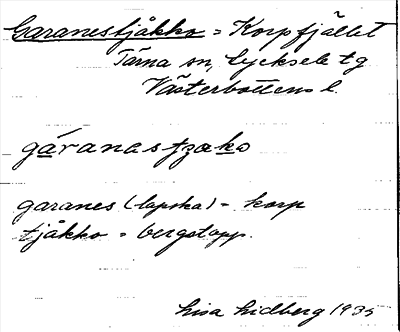 Garanestjåkko = Korpfjället
Tärna sn, Lycksele tg
Västerbottens l.
gáranastzako
garanes (lapska) = korp
tjåkko = bergstopp.
Lisa Lidberg 1935